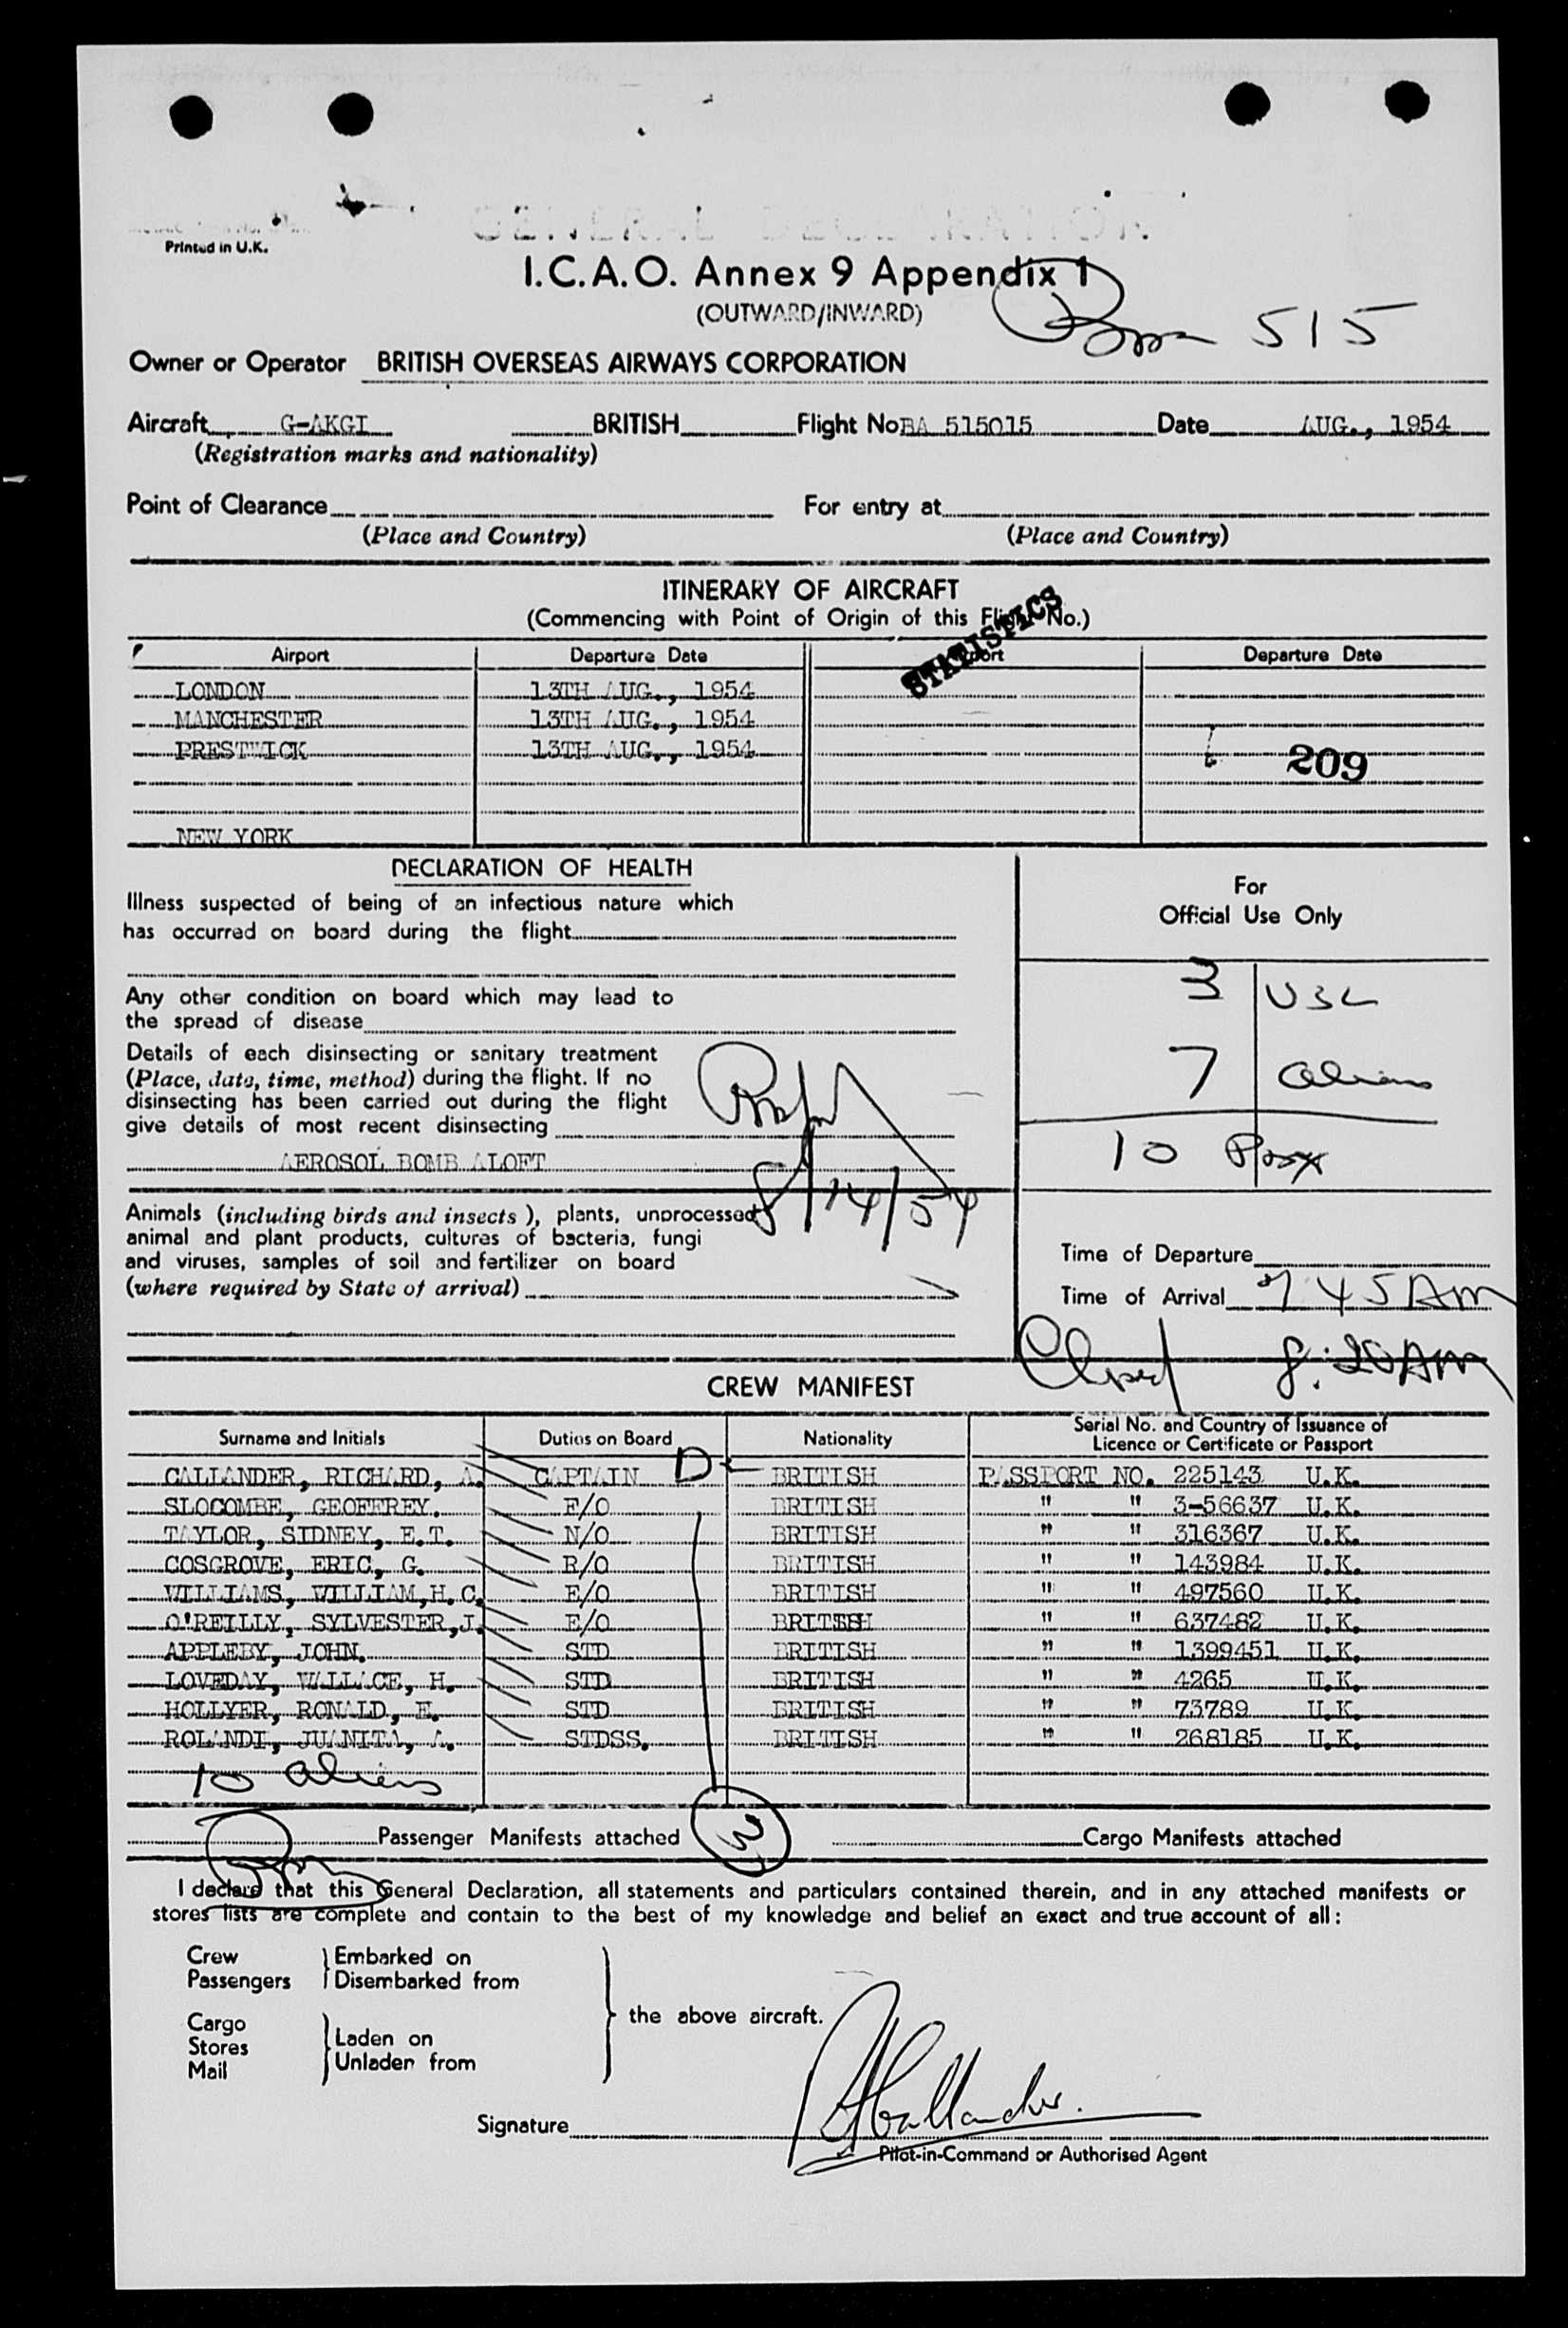 GENERAL DECLARATION
Printed in U.K.
I.C.A.O. Annex 9 Appendix 1
(OUTWARD/INWARD)
515
Owner or Operator BRITISH OVERSEAS AIRWAYS CORPORATION
Aircraft G-AKGI BRITISH Flight No BA 515015 Date AUG., 1954
(Registration marks and nationality)
Point of Clearance For entry at
(Place and Country) (Place and Country)
ITINERARY OF AIRCRAFT
(Commencing with Point of Origin of this Flight No.)
STATISTICS
Airport Departure Date Airport Departure Date
LONDON 13TH AUG., 1954
MANCHESTER 13TH AUG., 1954
PRESTWICK 13TH AUG., 1954
209
NEW YORK
DECLARATION OF HEALTH
Illness suspected of being of an infectious nature which
has occurred on board during the flight
Any other condition on board which may lead to
the spread of disease
Details of each disinsecting or sanitary treatment
(Place, date, time, method) during the flight. If no
disinsecting has been carried out during the flight
give details of most recent disinsecting
AEROSOL BOMB ALOFT
8/14/54
Animals (including birds and insects), plants, unprocessed
animal and plant products, cultures of bacteria, fungi
and viruses, samples of soil and fertilizer on board
(where required by State of arrival)
For
Official Use Only
3 USC
7 aliens
10 Pass
Time of Departure
Time of Arrival 745 AM
Closed 8:20 AM
CREW MANIFEST
Surname and Initials Duties on Board Nationality Serial No. and Country of Issuance of
Licence or Certificate or Passport
CALLANDER, RICHARD, A. CAPTAIN D BRITISH PASSPORT NO. 225143 U.K.
SLOCOMBE, GEOFFREY. F/O BRITISH " " 3-56637 U.K.
TAYLOR, SIDNEY, E.T. N/O BRITISH " " 316367 U.K.
COSGROVE, ERIC, G. R/O BRITISH " " 143984 U.K.
WILLIAMS, WILLIAM,H.C. E/O BRITISH " " 497560 U.K.
O'REILLY, SYLVESTER,J. E/O BRITISH " " 637482 U.K.
APPLEBY, JOHN. STD BRITISH " " 1399451 U.K.
LOVEDAY, WALLACE, H. STD BRITISH " " 4265 U.K.
HOLLYER, RONALD, E. STD BRITISH " " 73789 U.K.
ROLANDI, JUANITA, A. STDSS. BRITISH " " 268185 U.K.
10 aliens
Passenger Manifests attached 3 Cargo Manifests attached
I declare that this General Declaration, all statements and particulars contained therein, and in any attached manifests or
stores lists are complete and contain to the best of my knowledge and belief an exact and true account of all:
Crew Embarked on
Passengers Disembarked from
the above aircraft.
Cargo
Stores Laden on
Mail Unladen from
Signature RACallander.
Pilot-in-Command or Authorised Agent